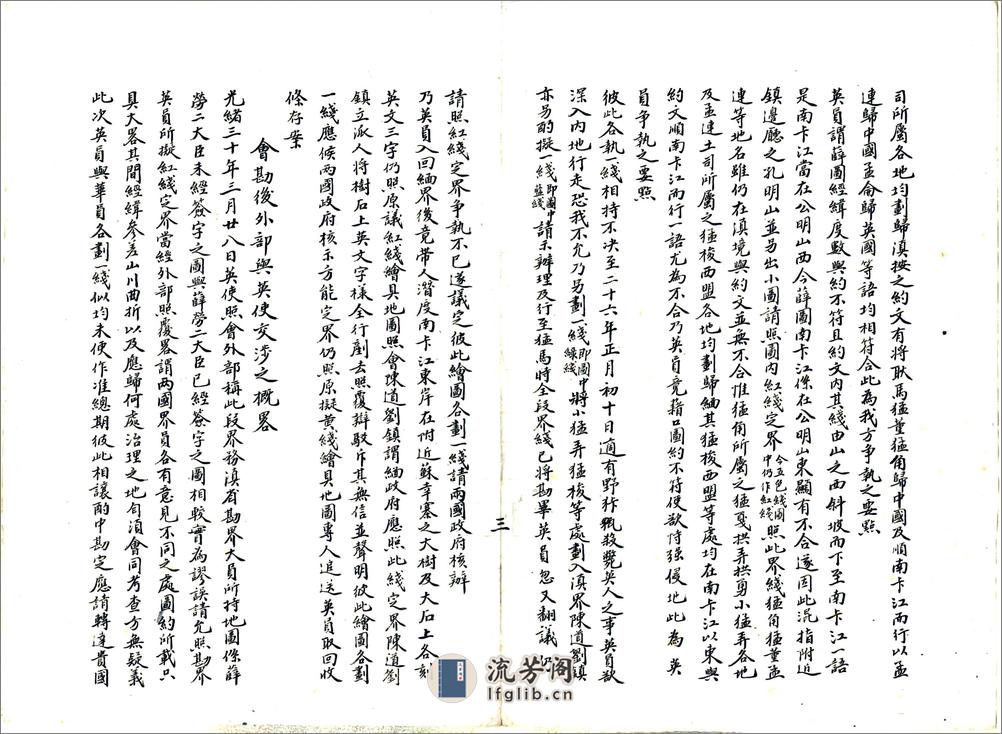 司所屬各地均劃歸滇按之約文有將耿馬猛董猛角歸中國及順南卡江而行以孟
連歸中國孟侖歸英國等語均相符合此為我方爭執之要點
英員謂薛圖經緯度數與約不符且約文內其綫由山之西斜坡而下至南卡江一語
是南卡江當在公明山西今薛圖南卡江係在公明山東顯有不合遂因此混指附近
鎮邊廳之孔明山並另出小圖請照圖內紅綫定界今五色綫圖中仍作紅綫照此界綫猛角猛董孟
連等地名雖仍在滇境與約文並無不合惟猛角所屬之猛戛拱弄拱勇小猛弄各地
及孟連土司所屬之猛梭西盟各地均劃歸緬其猛梭西盟等處均在南卡江以東與
約文順南卡江而行一語尤為不合乃英員竟藉口圖約不符便欲恃強侵地此為英
員爭執之要點
彼此各執一綫相持不決至二十六年正月初十日適有野狇戕殺斃英人之事英員欲
深入內地行走恐我不允乃另劃一綫即圖中綠綫將小猛弄猛梭等處劃入滇界陳道劉鎮
亦另酌擬一綫即圖中藍綫請示辦理及行至猛馬時全段界綫已將勘畢英員忽又翻議仍
三
請照紅綫定界爭執不已遂議定彼此繪圖各劃一綫請兩國政府核辦
乃英員入回緬界後竟帶人潛度南卡江東岸在附近蘇幸寨之大樹及大石上各刻
英文三字仍照原議紅綫繪具地圖照會陳道劉鎮謂緬政府應照此綫定界陳道劉
鎮立派人將樹石上英文字樣全行剷去照覆辯駁斥其無信並聲明彼此繪圖各劃
一綫應候兩國政府核示方能定界仍照原擬黃綫繪具地圖專人追送英員取回收
條存案
會勘後外部與英使交涉之概畧
光緒三十年三月廿八日英使照會外部稱此段界務滇省勘界大員所持地圖係薛
勞二大臣未經簽字之圖與薛勞二大臣已經簽字之圖相較實為謬誤請允照勘界
英員所擬紅綫定界當經外部照覆畧謂兩國界員各有意見不同之處圖約所載只
具大畧其間經緯參差山川曲折以及應歸何處治理之地自須會同考查方無疑義
此次英員與華員各劃一綫似均未便作准總期彼此相讓酌中勘定應請轉達貴國
流芳阁
lfglib.cn